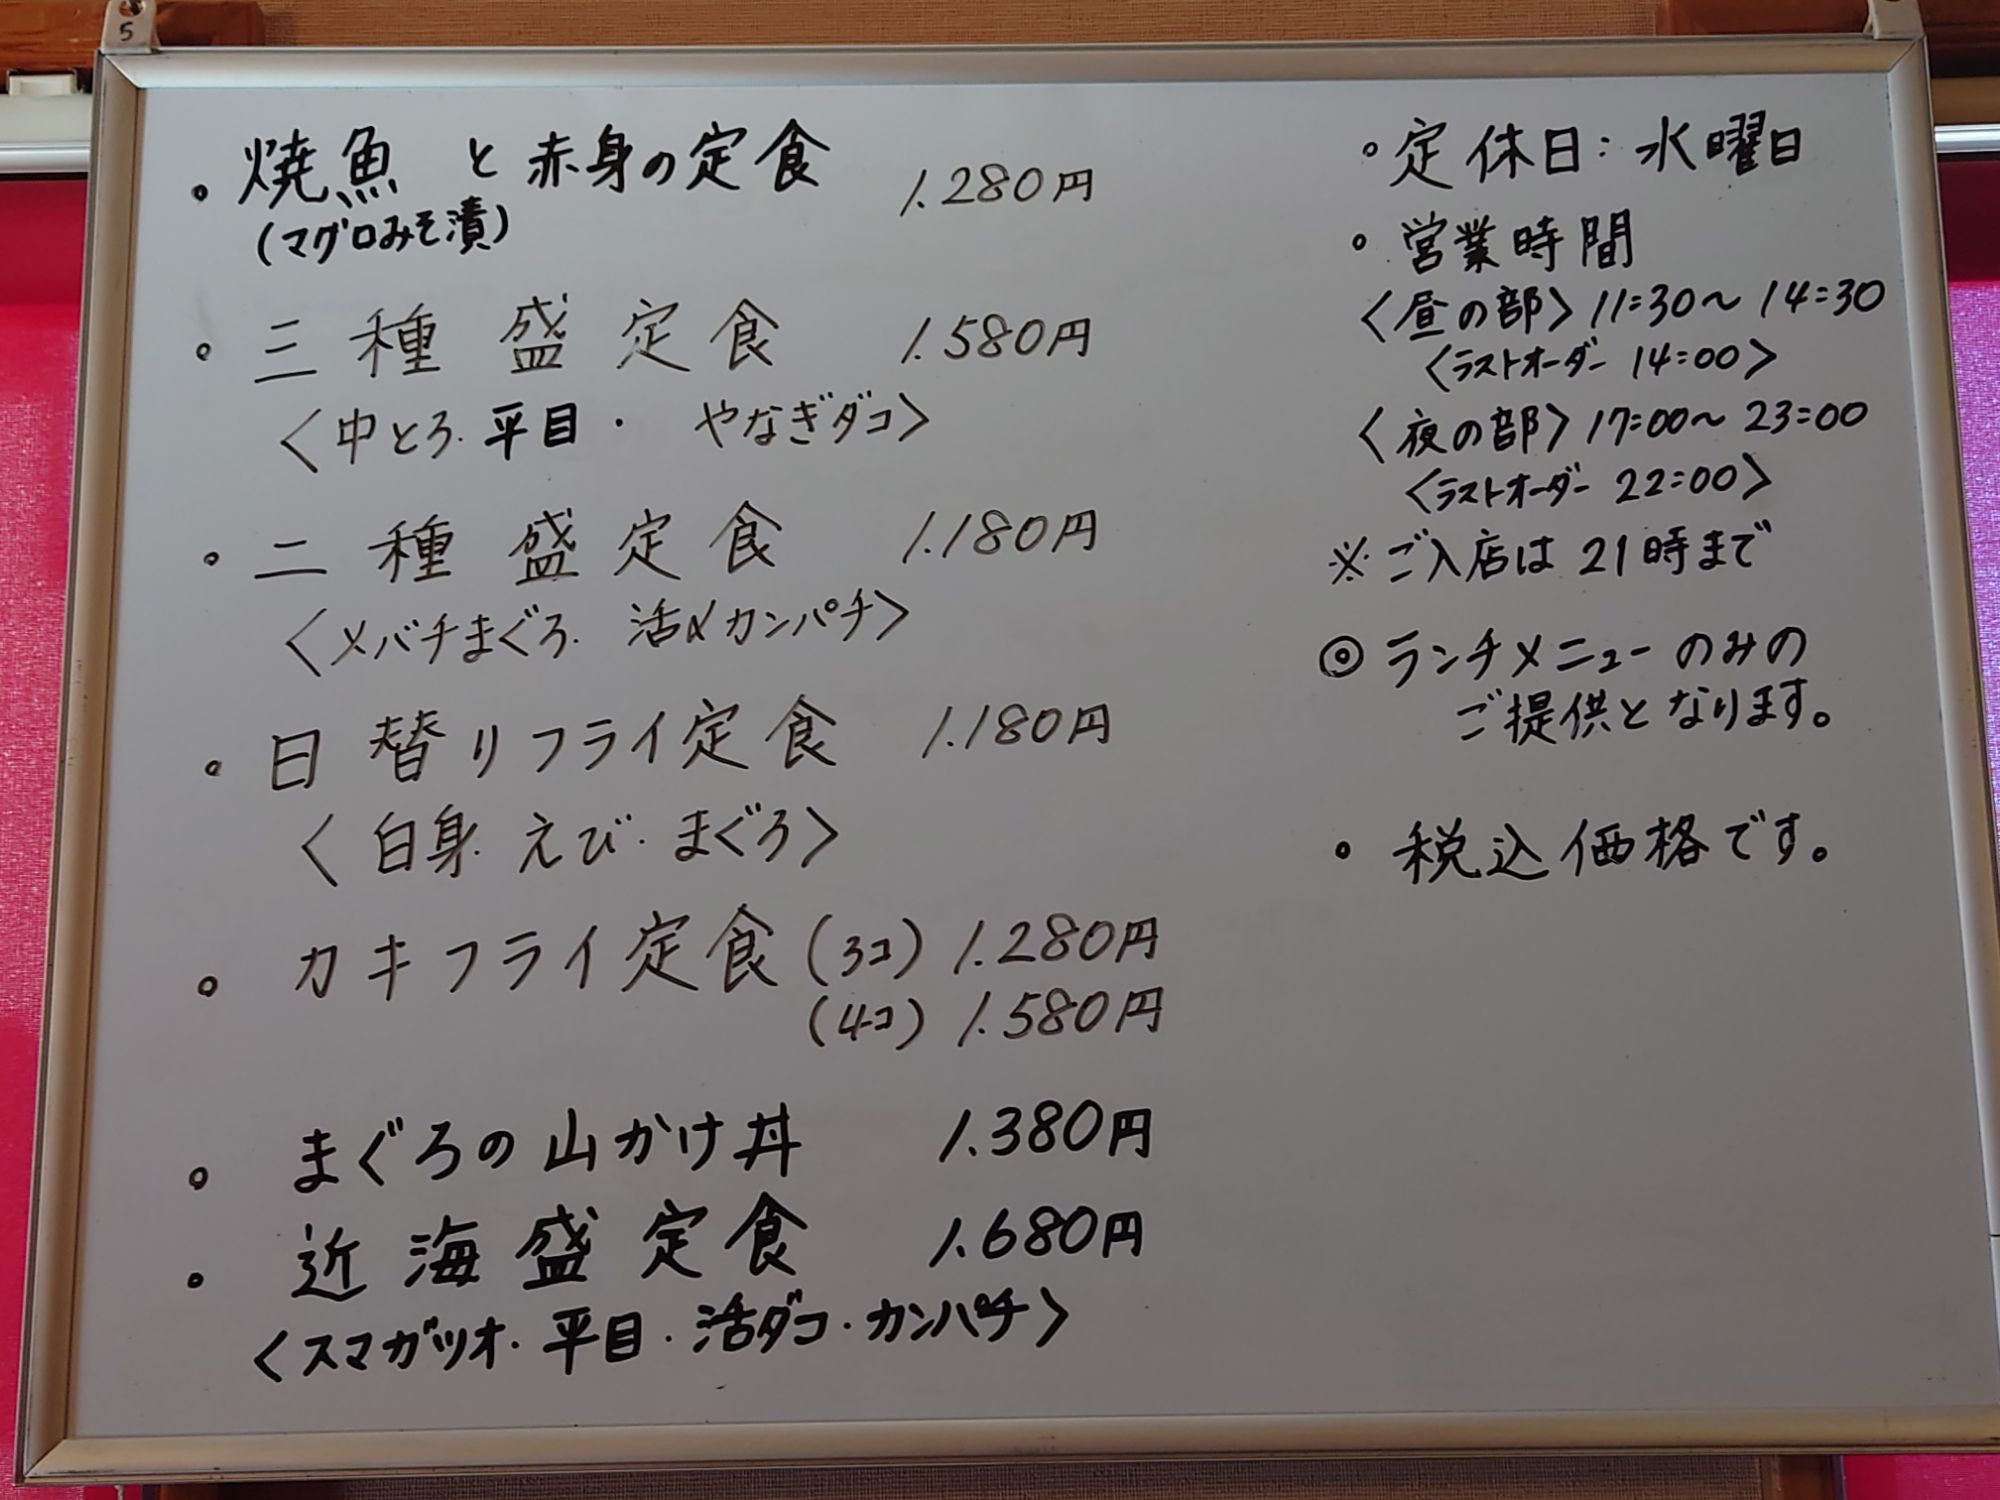 。焼魚 と赤身の定食 1.280円
(マグロみそ漬)
。三種盛定食 1.580円
〈中とろ.平目・ やなぎダコ〉
。二種盛定食 1.180円
〈メバチまぐろ. 活〆カンパチ〉
。日替りフライ定食 1.180円
〈白身.えび.まぐろ〉
。カキフライ定食(3コ) 1.280円
(4コ) 1.580円
。まぐろの山かけ丼 1.380円
。近海盛定食 1.680円
〈スマガツオ・平目・活ダコ・カンパチ〉
。定休日:水曜日
。営業時間
〈昼の部〉11:30〜14:30
〈ラストオーダー 14:00〉
〈夜の部〉17:00〜23:00
〈ラストオーダー 22:00〉
※ご入店は21時まで
◎ランチメニューのみの
ご提供となります。
。税込価格です。
5